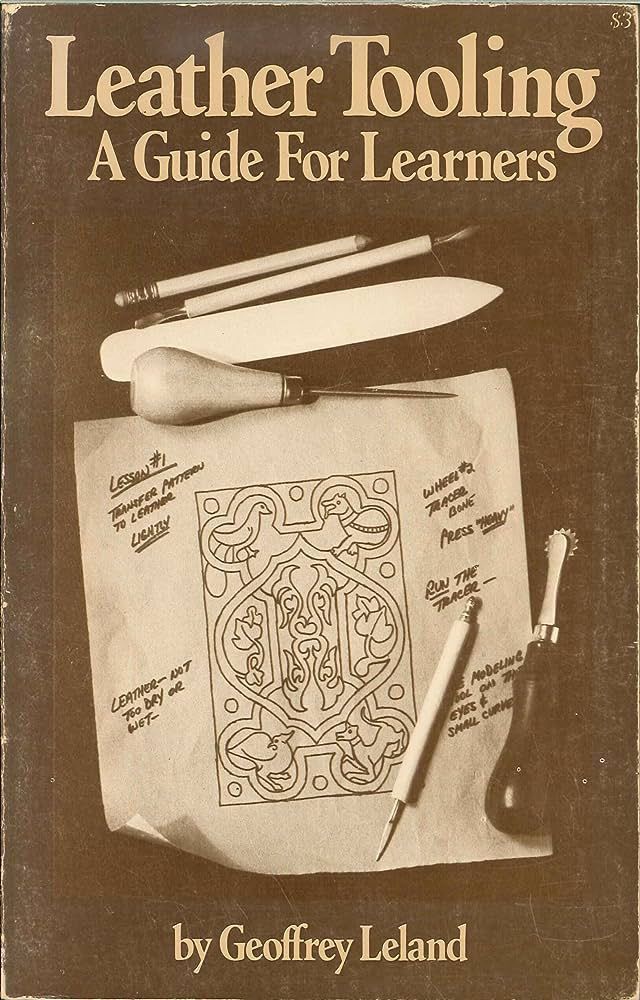 $3
Leather Tooling
A Guide For Learners
LESSON #1
TRANSFER PATTERN
TO LEATHER
LIGHTLY
WHEEL #2
TRACER
BONE
PRESS "HEAVY"
RUN THE
TRACER —
LEATHER — NOT
TOO DRY OR
WET —
MODELING
ON
EYES &
SMALL
by Geoffrey Leland